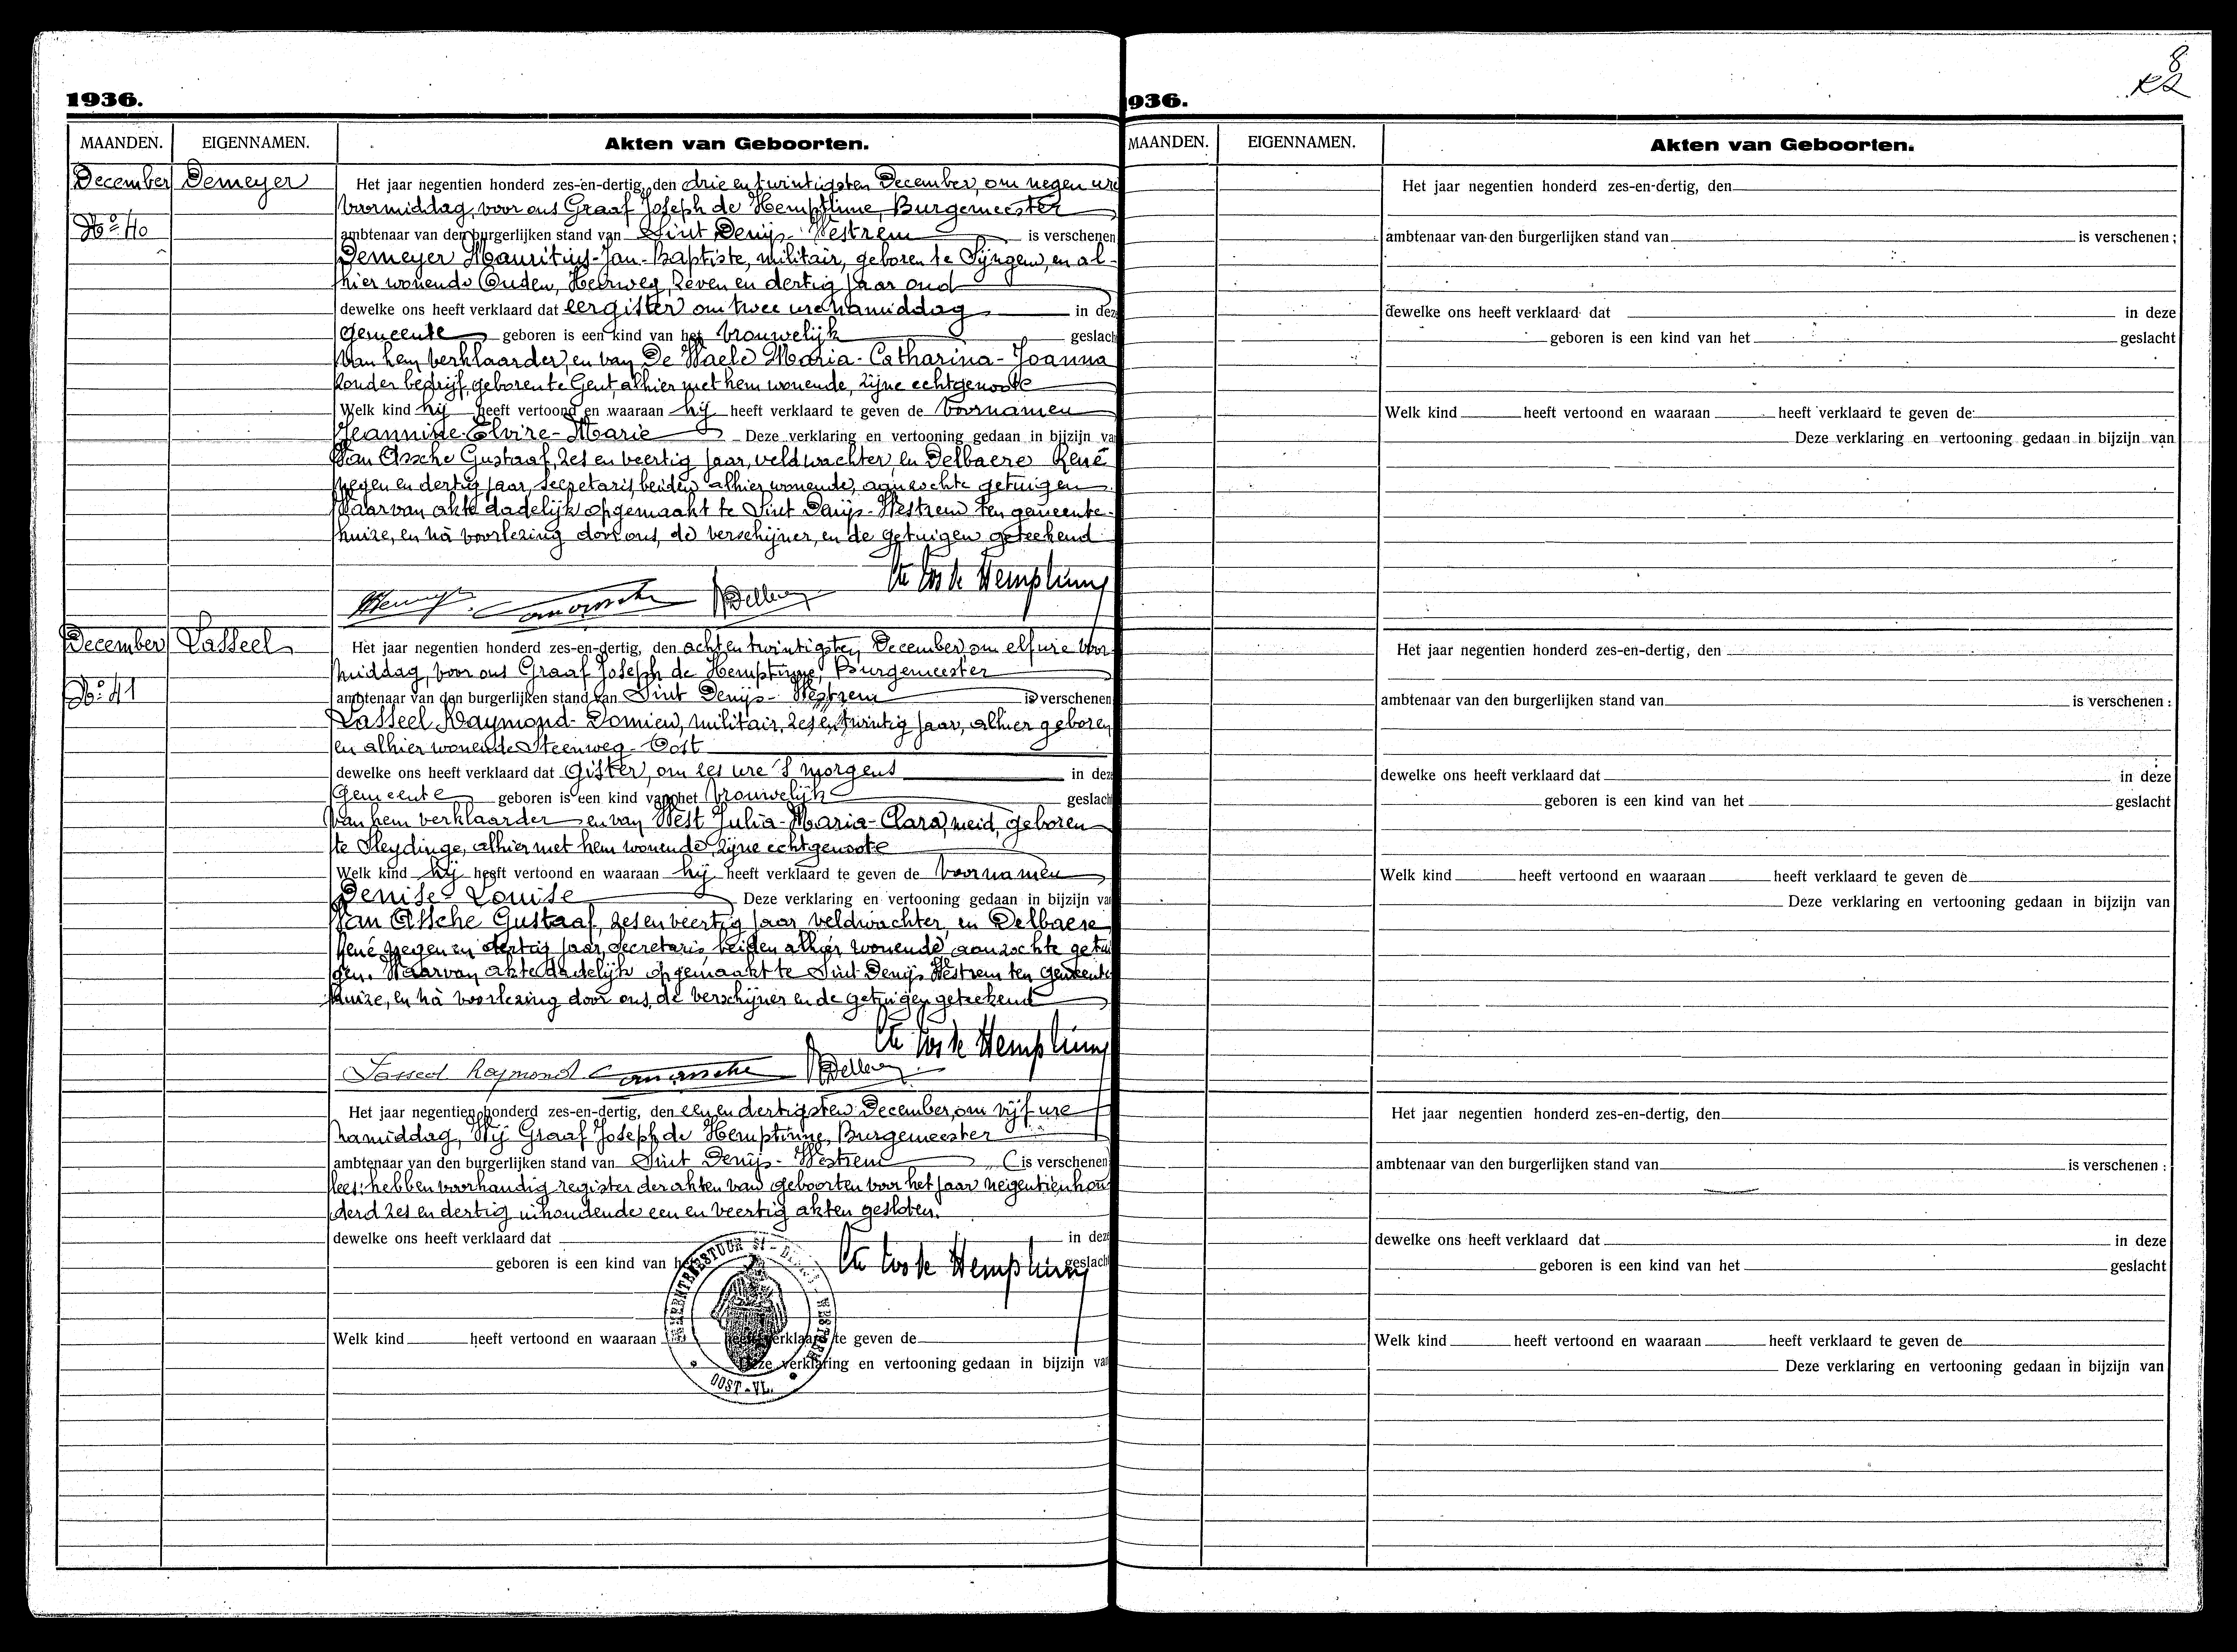 1936.
MAANDEN. EIGENNAMEN. Akten van Geboorten.
December Demeyer Het jaar negentien honderd zes-en-dertig, den drie en twintigsten December, om negen ure
voormiddag, voor ons Graaf Joseph de Hemptinne, Burgemeester
No 40 ambtenaar van den burgerlijken stand van Sint Denijs-Westrem is verschenen
Demeyer Mauritius-Jan-Baptiste, militair, geboren te Syngem, en al-
hier wonende Ouden Heerweg, zeven en dertig jaar oud
dewelke ons heeft verklaard dat eergister om twee ure namiddag in dez
gemeente geboren is een kind van het vrouwelijk geslach
van hem verklaarder, en van De Waele Maria-Catharina-Joanna
zonder bedrijf, geboren te Gent, alhier met hem wonende, zijne echtgenoote
Welk kind hij heeft vertoond en waaraan hij heeft verklaard te geven de voornamen
Jeannine-Elvire-Marie Deze verklaring en vertooning gedaan in bijzijn va
Van Assche Gustaaf, zes en veertig jaar, veldwachter, en Delbaere René
negen en dertig jaar, secretaris, beiden alhier wonende, aanzochte getuigen
Waarvan akte dadelijk opgemaakt te Sint Denijs-Westrem ten gemeente-
huize, en nà voorlezing door ons, de verschijner, en de getuigen geteekend
Cte Jos de Hemptinne
December Lasseel Het jaar negentien honderd zes-en-dertig, den acht en twintigsten December om elf ure voor
middag, voor ons Graaf Joseph de Hemptinne, Burgemeester
No 41 ambtenaar van den burgerlijken stand van Sint Denijs-Westrem is verschenen
Lasseel Raymond-Domien, militair, zes en twintig jaar, alhier geboren
en alhier wonende Steenweg-Oost
dewelke ons heeft verklaard dat gister, om zes ure 's morgens in dez
gemeente geboren is een kind van het vrouwelijk geslach
van hem verklaarder en van West Julia-Maria-Clara, meid, geboren
te Sleydinge, alhier met hem wonende, zijne echtgenoote
Welk kind hij heeft vertoond en waaraan hij heeft verklaard te geven de voornamen
Denise-Louise Deze verklaring en vertooning gedaan in bijzijn va
Van Assche Gustaaf, zes en veertig jaar veldwachter, en Delbaere
René negen en dertig jaar, secretaris, beiden alhier wonende, aanzochte getui
gen. Waarvan akte dadelijk opgemaakt te Sint Denijs Westrem ten gemeente
huize, en nà voorlezing door ons, de verschijner en de getuigen geteekend
Cte Jos de Hemptinne
Lasseel Raymond Vanassche
Het jaar negentien honderd zes-en-dertig, den een en dertigsten December, om vijf ure
namiddag, Wij Graaf Joseph de Hemptinne, Burgemeester
ambtenaar van den burgerlijken stand van Sint Denijs-Westrem (is verschenen
lees: hebben voorhandig register der akten van geboorten voor het jaar negentienhon
derd zes en dertig inhoudende een en veertig akten gesloten.
dewelke ons heeft verklaard dat in dez
geboren is een kind van he geslach
Cte Jos de Hemptinne
GEMEENTEBESTUUR St-DENIJS-WESTREM
OOST-VL.
Welk kind heeft vertoond en waaraan heeft verklaard te geven de
Deze verklaring en vertooning gedaan in bijzijn va
8
936.
MAANDEN. EIGENNAMEN. Akten van Geboorten.
Het jaar negentien honderd zes-en-dertig, den
ambtenaar van den burgerlijken stand van is verschenen:
dewelke ons heeft verklaard dat in deze
geboren is een kind van het geslacht
Welk kind heeft vertoond en waaraan heeft verklaard te geven de
Deze verklaring en vertooning gedaan in bijzijn van
Het jaar negentien honderd zes-en-dertig, den
ambtenaar van den burgerlijken stand van is verschenen:
dewelke ons heeft verklaard dat in deze
geboren is een kind van het geslacht
Welk kind heeft vertoond en waaraan heeft verklaard te geven de
Deze verklaring en vertooning gedaan in bijzijn van
Het jaar negentien honderd zes-en-dertig, den
ambtenaar van den burgerlijken stand van is verschenen:
dewelke ons heeft verklaard dat in deze
geboren is een kind van het geslacht
Welk kind heeft vertoond en waaraan heeft verklaard te geven de
Deze verklaring en vertooning gedaan in bijzijn van